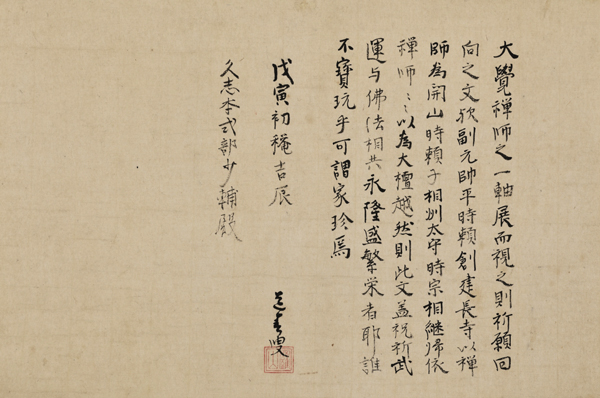 大覺禅師之一軸展而視之則祈願回
向之文欤副元帥平時頼創建長寺以禅
師為開山時頼子相州太守時宗相継帰依
禅師〻〻以為大檀越然則此文盖祝祈武
運与佛法相共永隆盛繁栄者耶誰
不寶玩乎可謂家珍焉
戊寅初穐吉辰
道春叟
久志本式部少輔殿